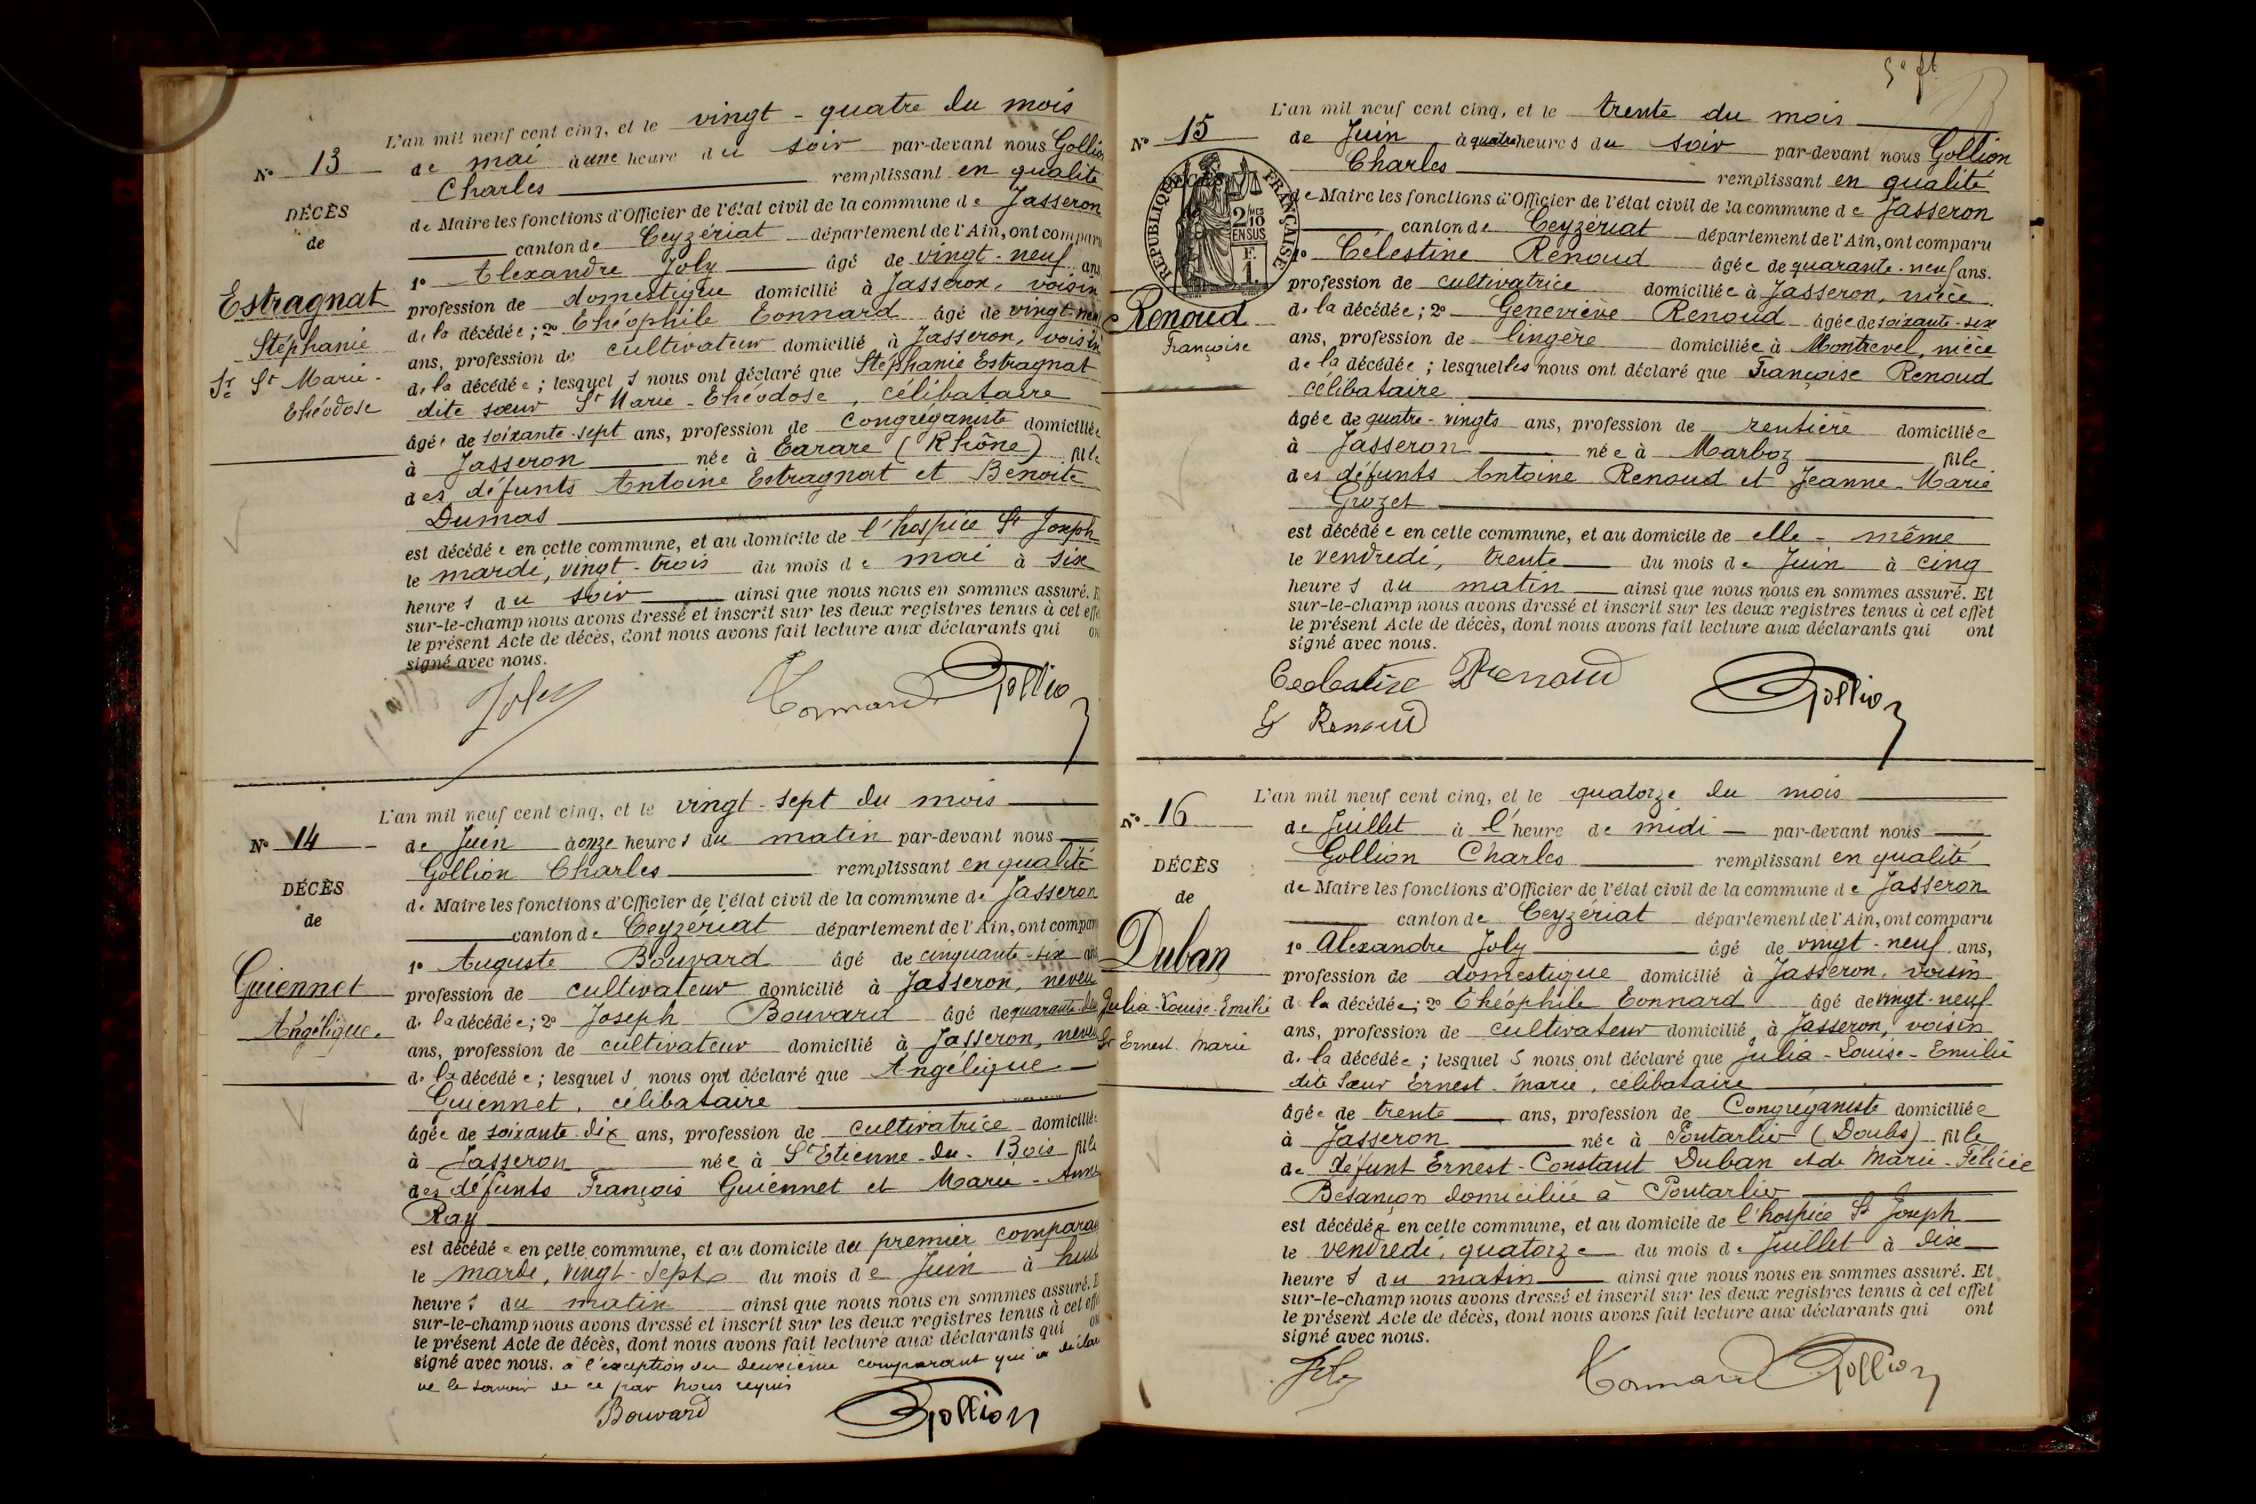 N° 13
DÉCÈS
de
Estragnat
Stéphanie
Sr St Marie-
Théodose
L'an mil neuf cent cinq, et le vingt-quatre du mois
de mai à une heure du soir par-devant nous Gollion
Charles remplissant en qualité
de Maire les fonctions d'Officier de l'état civil de la commune de Jasseron
canton de Ceyzériat département de l'Ain, ont comparu
1° Alexandre Joly âgé de vingt-neuf ans
profession de domestique domicilié à Jasseron, voisin
de la décédée; 2° Théophile Tonnard âgé de vingt-neuf
ans, profession de cultivateur domicilié à Jasseron, voisin
de la décédée; lesquels nous ont déclaré que Stéphanie Estragnat
dite sœur St Marie-Théodose, célibataire
âgée de soixante-sept ans, profession de Congréganiste domiciliée
à Jasseron née à Tarare (Rhône) fille
des défunts Antoine Estragnat et Benoite
Dumas
est décédée en cette commune, et au domicile de l'hospice St Joseph
le mardi, vingt-trois du mois de mai à six
heures du soir ainsi que nous nous en sommes assuré. E
sur-le-champ nous avons dressé et inscrit sur les deux registres tenus à cet effe
le présent Acte de décès, dont nous avons fait lecture aux déclarants qui on
signé avec nous.
Joly Tonnard Gollion
N° 14
DÉCÈS
de
Guiennet
Angélique.
L'an mil neuf cent cinq, et le vingt-sept du mois
de Juin à onze heures du matin par-devant nous
Gollion Charles remplissant en qualité
de Maire les fonctions d'Officier de l'état civil de la commune de Jasseron
canton de Ceyzériat département de l'Ain, ont compar
1° Auguste Bouvard âgé de cinquante-six ans
profession de cultivateur domicilié à Jasseron, neveu
de la décédée; 2° Joseph Bouvard âgé de quarante
ans, profession de cultivateur domicilié à Jasseron, neveu
de la décédée; lesquels nous ont déclaré que Angélique
Guiennet, célibataire
âgée de soixante-dix ans, profession de cultivatrice domiciliée
à Jasseron née à St Etienne-du-Bois fille
des défunts François Guiennet et Marie-Anne
Ray
est décédée en cette commune, et au domicile du premier comparant
le mardi, vingt-sept du mois de Juin à huit
heures du matin ainsi que nous nous en sommes assuré. E
sur-le-champ nous avons dressé et inscrit sur les deux registres tenus à cet effe
le présent Acte de décès, dont nous avons fait lecture aux déclarants qui on
signé avec nous. à l'exception du deuxième comparant qui a déclaré
ne le savoir de ce par nous requis
Bouvard Gollion
N° 15
RÉPUBLIQUE FRANÇAISE
2/10 EN SUS
F. 1.
Renoud
Françoise
L'an mil neuf cent cinq, et le trente du mois
de Juin à quatre heures du soir par-devant nous Gollion
Charles remplissant en qualité
de Maire les fonctions d'Officier de l'état civil de la commune de Jasseron
canton de Ceyzériat département de l'Ain, ont comparu
1° Célestine Renoud âgée de quarante-neuf ans.
profession de cultivatrice domiciliée à Jasseron, nièce
de la décédée; 2° Geneviève Renoud âgée de soixante-six
ans, profession de lingère domiciliée à Montrevel, nièce
de la décédée; lesquelles nous ont déclaré que Françoise Renoud
célibataire
âgée de quatre-vingts ans, profession de rentière domiciliée
à Jasseron née à Marboz fille
des défunts Antoine Renoud et Jeanne-Marie
Grozet
est décédée en cette commune, et au domicile de elle-même
le vendredi, trente du mois de Juin à cinq
heures du matin ainsi que nous nous en sommes assuré. Et
sur-le-champ nous avons dressé et inscrit sur les deux registres tenus à cet effet
le présent Acte de décès, dont nous avons fait lecture aux déclarants qui ont
signé avec nous.
Celestine Renoud Gollion
G Renoud
N° 16
DÉCÈS
de
Duban
Julia-Louise-Emilie
Sr Ernest Marie
L'an mil neuf cent cinq, et le quatorze du mois
de Juillet à l'heure de midi par-devant nous
Gollion Charles remplissant en qualité
de Maire les fonctions d'Officier de l'état civil de la commune de Jasseron
canton de Ceyzériat département de l'Ain, ont comparu
1° Alexandre Joly âgé de vingt-neuf ans,
profession de domestique domicilié à Jasseron, voisin
de la décédée; 2° Théophile Tonnard âgé de vingt-neuf
ans, profession de cultivateur domicilié à Jasseron, voisin
de la décédée; lesquels nous ont déclaré que Julia-Louise-Emilie
dite Sœur Ernest-Marie, célibataire
âgée de trente ans, profession de Congréganiste domiciliée
à Jasseron née à Pontarlier (Doubs) fille
de défunt Ernest-Constant Duban et de Marie-Félicie
Besançon domiciliée à Pontarlier
est décédée en cette commune, et au domicile de l'hospice St Joseph
le vendredi, quatorze du mois de Juillet à dix
heures du matin ainsi que nous nous en sommes assuré. Et
sur-le-champ nous avons dressé et inscrit sur les deux registres tenus à cet effet
le présent Acte de décès, dont nous avons fait lecture aux déclarants qui ont
signé avec nous.
Joly Tonnard Gollion